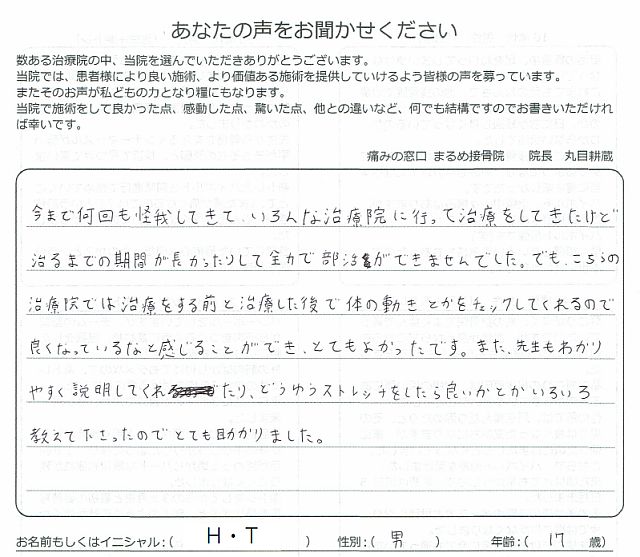 あなたの声をお聞かせください
数ある治療院の中、当院を選んでいただきありがとうございます。
当院では、患者様により良い施術、より価値ある施術を提供していけるよう皆様の声を募っています。
またそのお声が私どもの力となり糧にもなります。
当院で施術をして良かった点、感動した点、驚いた点、他との違いなど、何でも結構ですのでお書きいただければ幸いです。
痛みの窓口 まるめ接骨院 院長 丸目耕蔵
今まで何回も怪我してきて、いろんな治療院に行って治療をしてきたけど
治るまでの期間が長かったりして全力で部活ができませんでした。でも、こちらの
治療院では治療をする前と治療した後で体の動きとかをチェックしてくれるので
良くなっているなと感じることができ、とてもよかったです。また、先生もわかり
やすく説明してくれたり、どうゆうストレッチをしたら良いかとかいろいろ
教えて下さったのでとても助かりました。
お名前もしくはイニシャル:( H・T ) 性別:( 男 ) 年齢:( 17 歳)